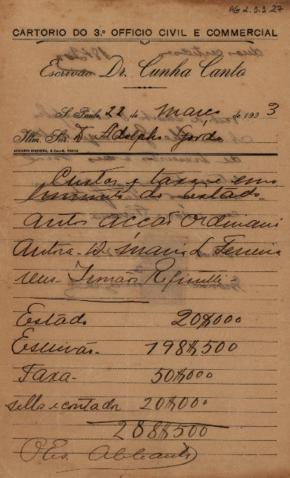 AG 2.5.3.27
CARTORIO DO 3.º OFFICIO CIVIL E COMMERCIAL
Escrivão Dr. Cunha Canto
S. Paulo, 22 de Março de 1933
Illm. Snr. Dr Adolpho Gordo
Custas e taxa
do Estado
autos acção Ordinaria
Autora D. Maria L Ferreira
reus Irmãos
Estado 20$000
Escrivão 198$500
Taxa 50$000
sello e contador 20$000
288$500